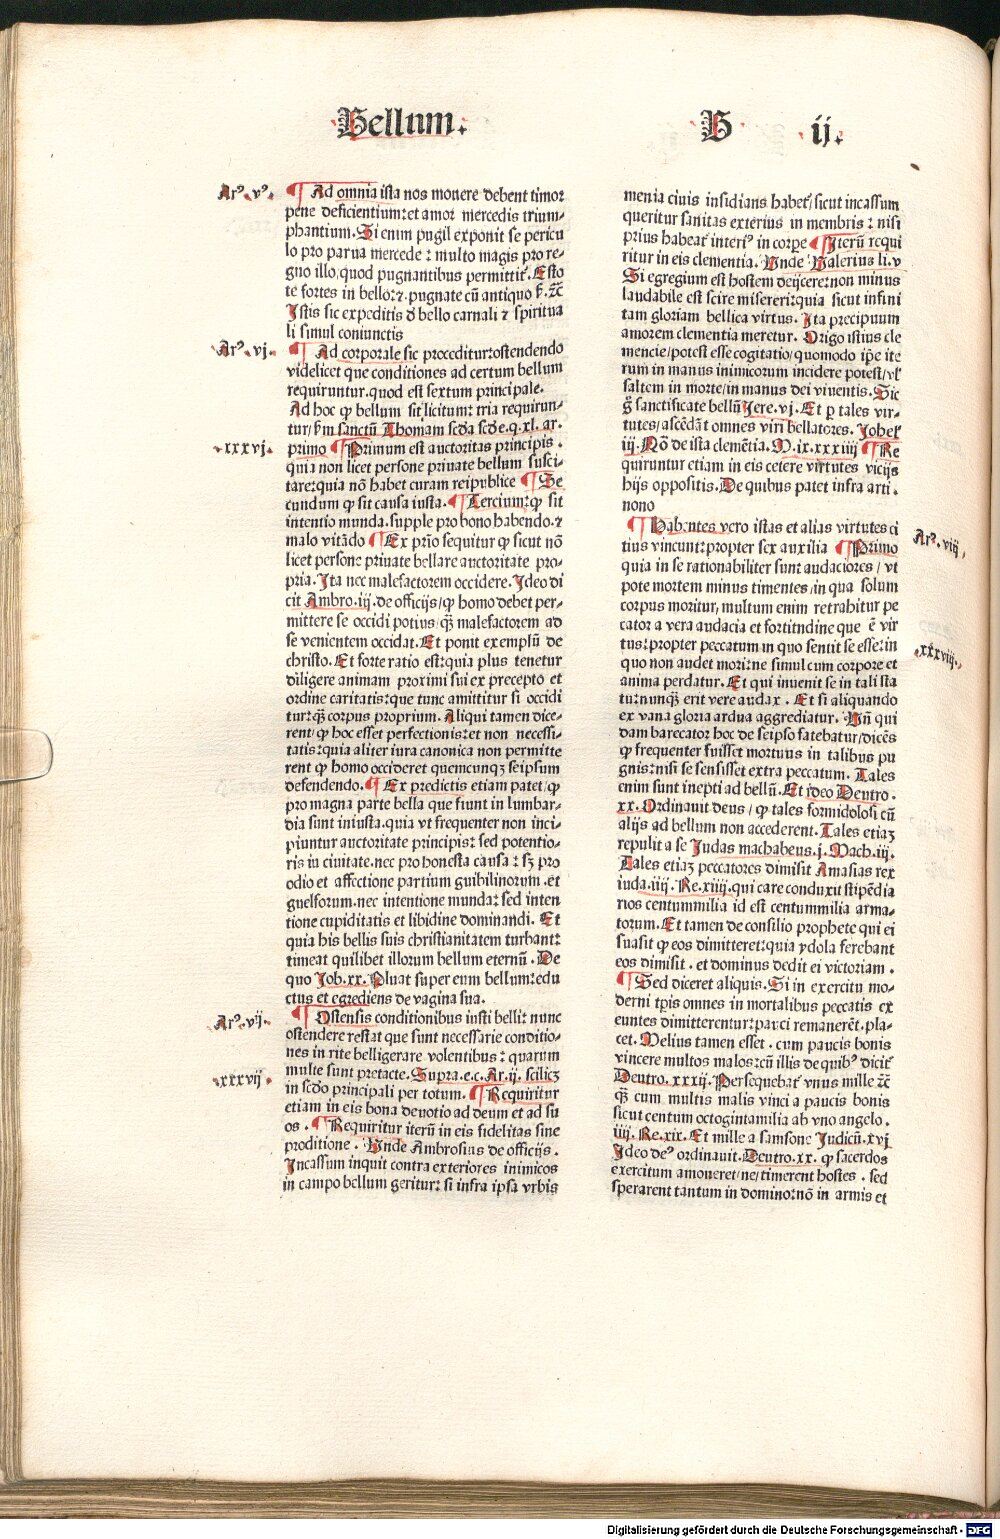 Bellum. B ij.
Arꝰ. vꝰ.
¶ Ad omnia ista nos monere debent timor
pene deficientium: et amor mercedis trium⸗
phantium. Si enim pugil exponit se pericu
lo pro parua mercede: multo magis pro re⸗
gno illo, quod pugnantibus permittit̄. Esto
te fortes in bello: ⁊. pugnate cū antiquo ẜ. ⁊c̄
Istis sic expeditis ð bello carnali ⁊ spiritua
li simul coniunctis
Arꝰ. vj.
¶ Ad corporale sic proceditur: ostendendo
videlicet que conditiones ad certum bellum
requiruntur. quod est sextum principale.
Ad hoc ꝙ bellum sit licitum: tria requirun⸗
tur/ ẜm sanctū Thomam scða scðe. q. xl. ar.
xxxvj.
primo ¶ Primum est auctoritas principis.
quia non licet persone priuate bellum susci⸗
tare: quia nō habet curam reipublice ¶ Se
cundum ꝙ sit causa iusta. ¶ Tercium: ꝙ sit
intentio munda. supple pro bono habendo. ⁊
malo vitādo ¶ Ex prīo sequitur ꝙ sicut nō
licet persone priuate bellare auctoritate pro⸗
pria. Ita nec malefactorem occidere. Ideo di
cit Ambro. iij. de officijs/ ꝙ homo debet per⸗
mittere se occidi potius/ qꝫ malefactorem ad
se venientem occidat. Et ponit exemplū de
christo. Et forte ratio est: quia plus tenetur
diligere animam proximi sui ex precepto et
ordine caritatis: que tunc amittitur si occidi
tur: qꝫ corpus proprium. Aliqui tamen dice⸗
rent/ ꝙ hoc esset perfectionis: et non necessi⸗
tatis: quia aliter iura canonica non permitte
rent ꝙ homo occideret quemcunqꝫ seipsum
defendendo. ¶ Ex predictis etiam patet/ ꝙ
pro magna parte bella que fiunt in lumbar⸗
dia sunt iniusta. quia vt frequenter non inci⸗
piuntur auctoritate principis: sed potentio⸗
ris in ciuitate. nec pro honesta causa: sꝫ pro
odio et affectione partium guibilinorum. et
guelforum. nec intentione munda: sed inten
tione cupiditatis et libidine dominandi. Et
quia his bellis suis christianitatem turbant:
timeat quilibet illorum bellum eternū. De
quo Job. xx. Pluat super eum bellum: edu
ctus et egrediens de vagina sua.
Arꝰ. vij.
¶ Ostensis conditionibus iusti belli: nunc
ostendere restat que sunt necessarie conditio⸗
nes in rite belligerare volentibus: quarum
xxxvij
multe sunt pretacte. Supra. e. c. Ar. ij. scilicꝫ
in scðo principali per totum. ¶ Requiritur
etiam in eis bona deuotio ad deum et ad su
os. ¶ Requiritur iterū in eis fidelitas sine
proditione. Unde Ambrosius de officijs.
Incassum inquit contra exteriores inimicos
in campo bellum geritur: si infra ipsa vrbis
menia ciuis insidians habet̄/ sicut incassum
queritur sanitas exterius in membris: nisi
prius habeat̄ interiꝰ in corpe ¶ Iterū requi
ritur in eis clementia. Unde Valerius li. v
Si egregium est hostem deijcere: non minus
laudabile est scire misereri: quia sicut infini
tam gloriam bellica virtus. Ita precipuum
amorem clementia meretur. Origo istius cle
mencie/ potest esse cogitatio/ quomodo ip̄e ite
rum in manus inimicorum incidere potest/ vł
saltem in morte/ in manus dei viuentis. Sic
g̊ sanctificate bellū Jere. vj. Et ꝑ tales vir⸗
tutes/ ascēdāt omnes viri bellatores. Johel
iij. Nō de ista clemētia. M. ix. xxxiiij ¶ Re
quiruntur etiam in eis cetere virtutes vicijs
hijs oppositis. De quibus patet infra arti.
nono
Arꝰ. viij
¶ Habentes vero istas et alias virtutes ci
tius vincunt: propter sex auxilia ¶ Primo
quia in se rationabiliter sunt audaciores/ vt
pote mortem minus timentes/ in qua solum
corpus moritur, multum enim retrahitur pe
cator a vera audacia et fortitndine que ē vir
xxxviij.
tus: propter peccatum in quo sentit se esse: in
quo non audet mori: ne simul cum corpore et
anima perdatur. Et qui inuenit se in tali sta
tu: nunqꝫ erit vere audax. Et si aliquando
ex vana gloria ardua aggrediatur. Vn̄ qui
dam barecator hoc de seipso fatebatur/ dicēs
ꝙ frequenter fuisset mortuus in talibus pu
gnis: nisi se sensisset extra peccatum. Tales
enim sunt inepti ad bellū. Et ideo Deutro.
xx. Ordinauit deus/ ꝙ tales formidolosi cū
alijs ad bellum non accederent. Tales etiaꝫ
repulit a se Judas machabeus. j. Mach. iij.
Tales etiaꝫ peccatores dimisit Amasias rex
iuda. iiij. Re. xiiij. qui care conduxit stipēdia
rios centummilia id est centummilia arma⸗
torum. Et tamen de consilio prophete qui ei
suasit ꝙ eos dimitteret: quia ydola ferebant
eos dimisit. et dominus dedit ei victoriam.
¶ Sed diceret aliquis. Si in exercitu mo⸗
derni tp̄is omnes in mortalibus peccatis ex
euntes dimitterentur: pauci remanerēt. pla⸗
cet. Melius tamen esset. cum paucis bonis
vincere multos malos: cū illis de quibꝰ dicit̄
Deutro. xxxij. Persequebat̄ vnus mille ⁊c̄
qꝫ cum multis malis vinci a paucis bonis
sicut centum octogintamilia ab vno angelo.
iiij. Re. xix. Et mille a samsone Judicū. xvj
Ideo deꝰ ordinauit. Deutro. xx. ꝙ sacerdos
exercitum amoueret/ ne/ timerent hostes. sed
sperarent tantum in domino: nō in armis et
Digitalisierung gefördert durch die Deutsche Forschungsgemeinschaft - DFG